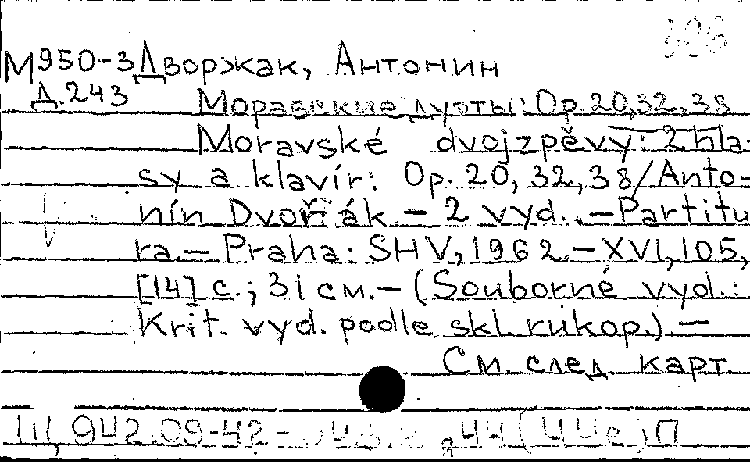 М950-3 Дворжак, Антонин
Д.243 Моравские дуэты: Op.20,32,38
Moravské dvojzpěvy: 2 hla-
sy a klavír: Op. 20, 32, 38/Anto-
nín Dvořák. – 2 vyd. – Partitu
ra. – Praha: SHV, 1962. – XVI, 105,
[14] с.; 31 см. – (Souborné vyd.:
Krit. vyd. podle skl. rukop.). –
См. след. карт.